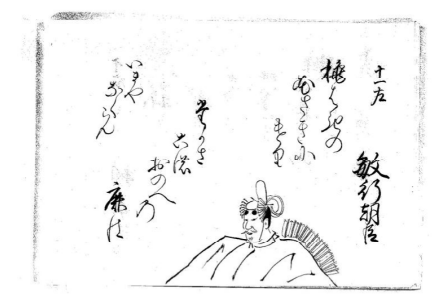 十一左
敏行朝臣
穐はきの
花さき尓
けり
堂かさ
古濃
おのへ乃
鹿は
いまや
なくらん